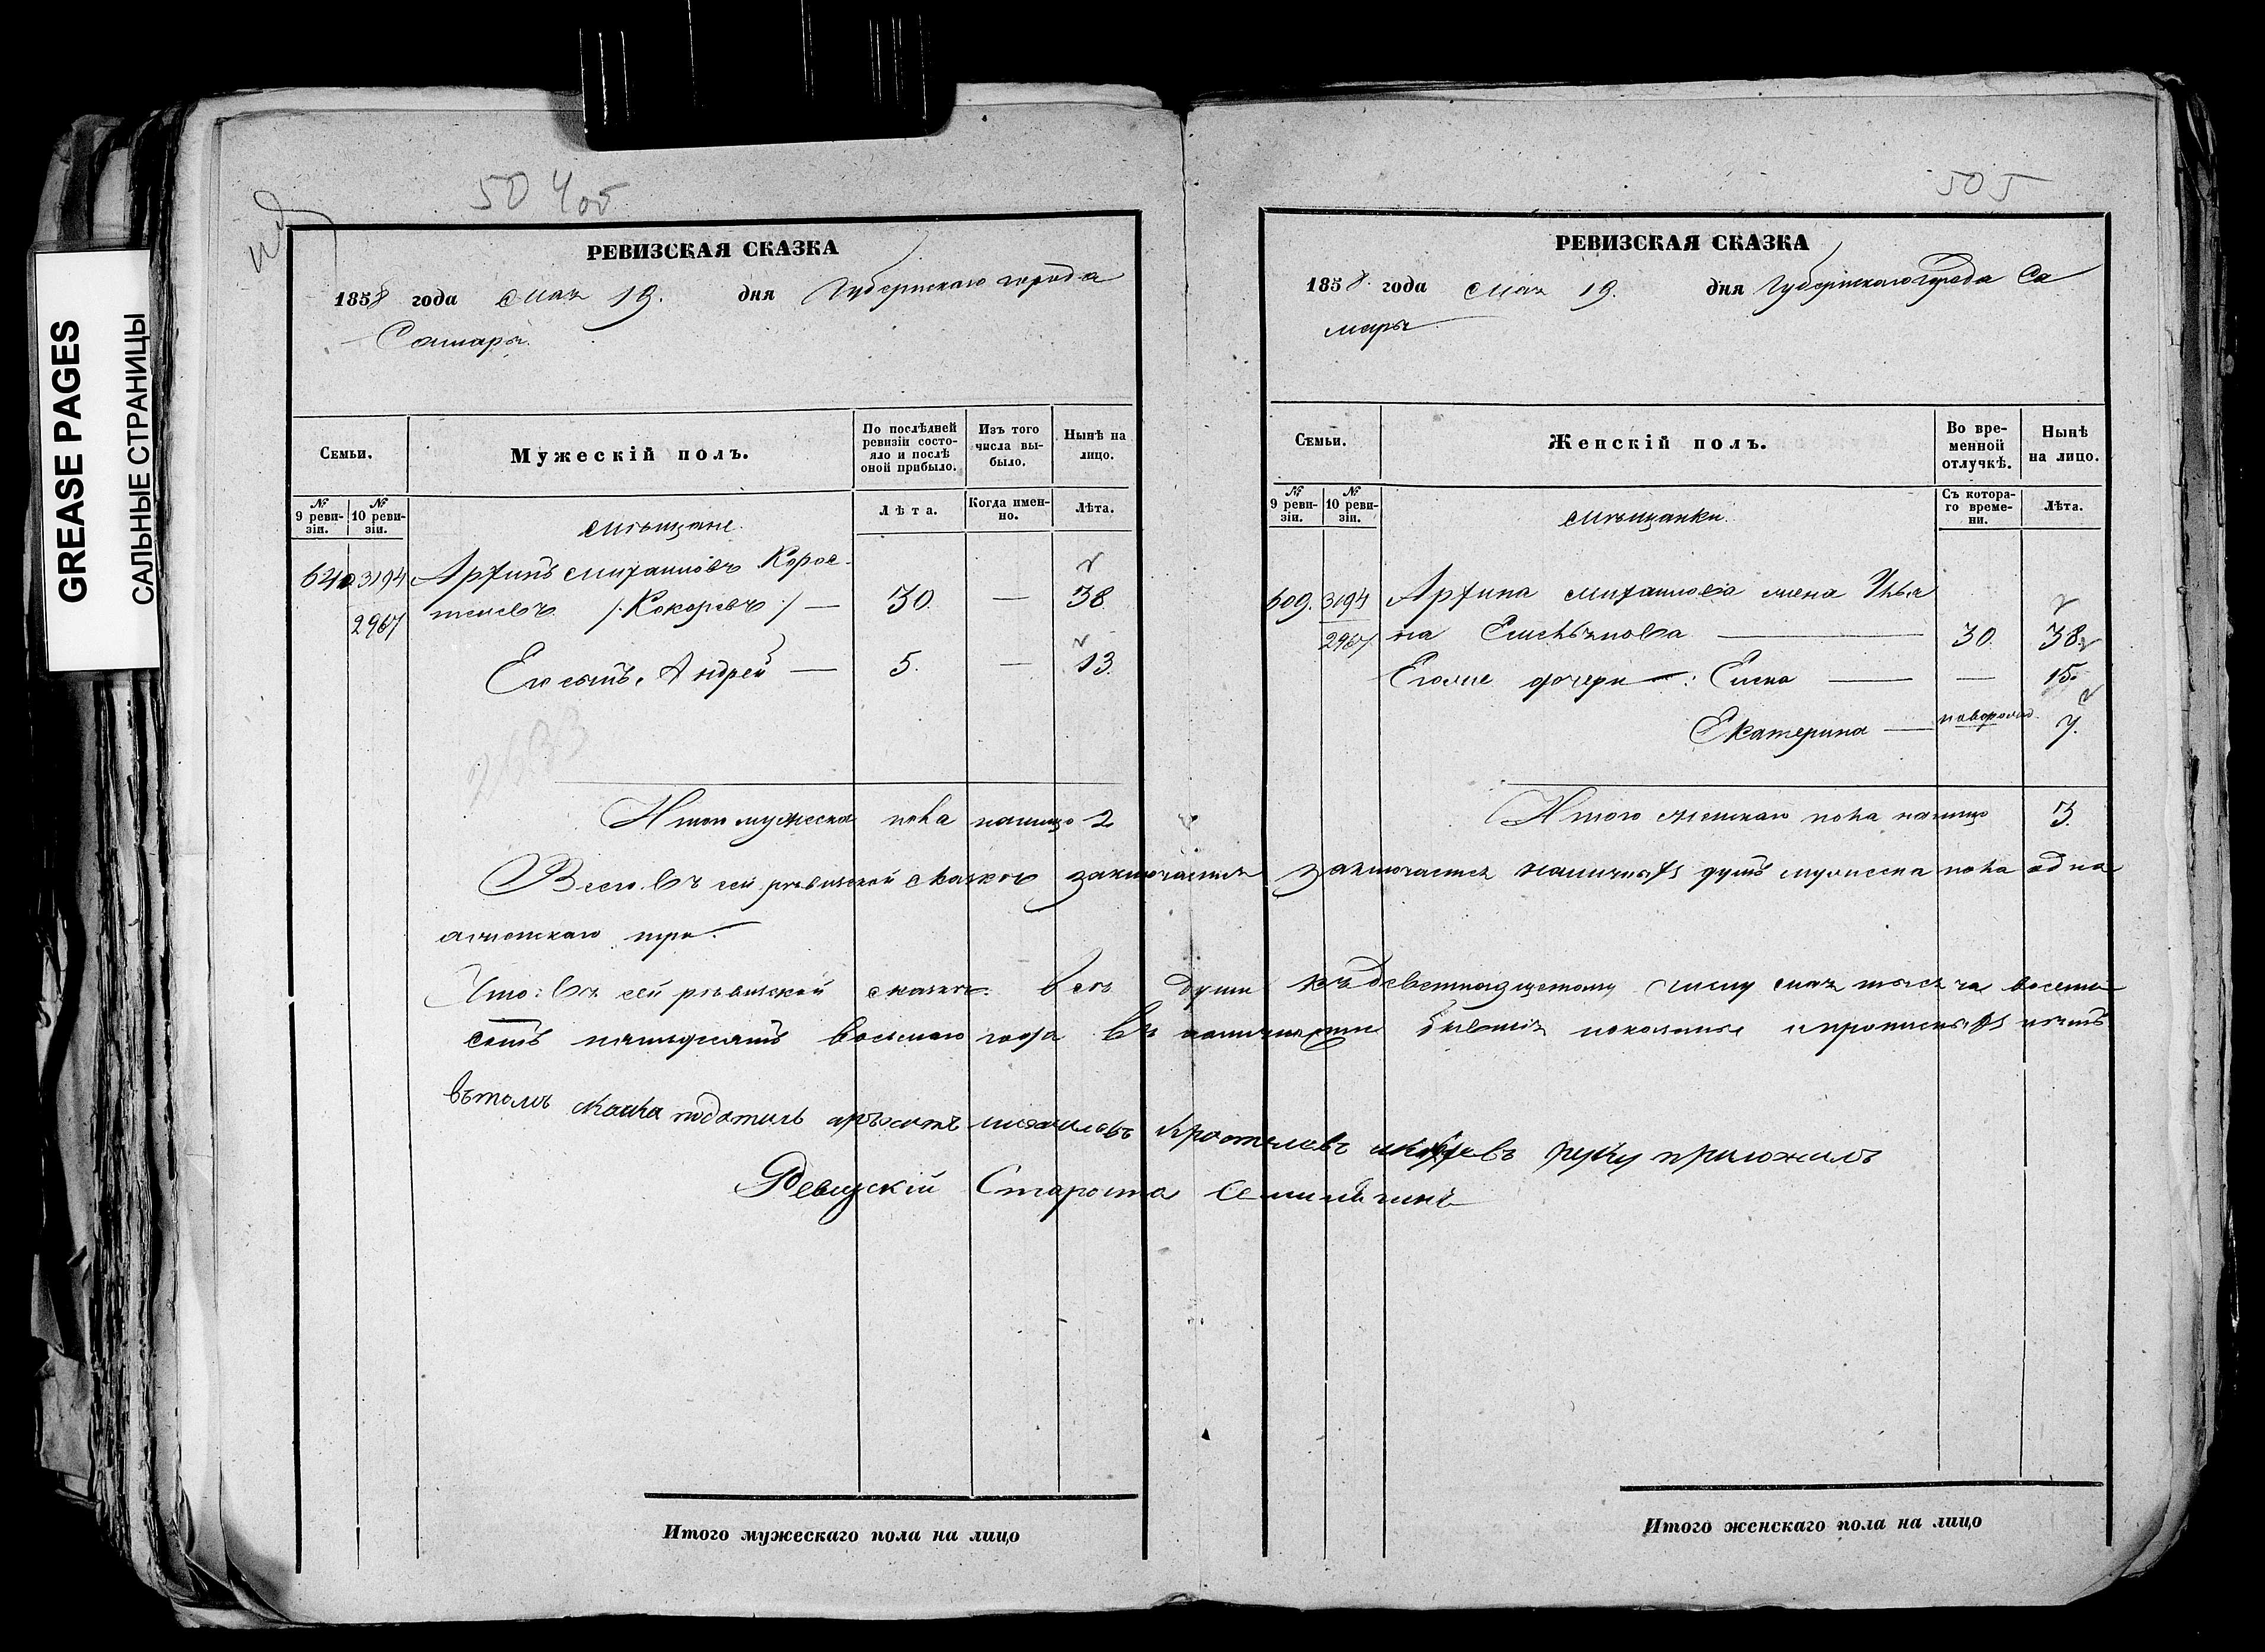 GREASE PAGES
САЛЬНЫЕ СТРАНИЦЫ
504об
РЕВИЗСКАЯ СКАЗКА
1858 года Мая 19. дня Губернскаго города
Самары.
Семьи.
Мужескій полъ.
По послѣдней ревизіи состояло и послѣ оной прибыло.
Изъ того числа выбыло.
Нынѣ на лицо.
№ 9 ревизіи.
№ 10 ревизіи.
Мѣщане.
Лѣта.
Когда именно.
Лѣта.
3194 Архипъ Михаиловъ Корос-
2967 телевъ /:Кокоревъ:/ — 30. — 38
Его сынъ, Андрей — 5. — 13.
Итого мужеска пола налицо 2
Всего въ сей ревизской сказкѣ заключается
а женскаго три.
Что: въ сей ревизской сказкѣ. всѣ души
сотъ пятьдесятъ восьмаго года въ наличности
Въ томъ сказка Михаиловъ
Ревизскій Староста
Итого мужескаго пола на лицо
505
РЕВИЗСКАЯ СКАЗКА
1858. года Мая 19. дня Губернскаго города Са
мары
Семьи.
Женскій полъ.
Во временной отлучкѣ.
Нынѣ на лицо.
№ 9 ревизіи.
№ 10 ревизіи.
Мѣщанки.
Съ котораго времени.
Лѣта.
609. 3194 Архипа Михаилова жена Улья
2967 на Емельянова 30. 38.
Его же дочери: Елена — — 15.
Екатерина — новорожд. 7.
Итого женскаго пола налицо 3.
заключается наличныхъ душъ мужеска пола одна
къ девятнадцетому числу Мая тысяча восемь
бывшія показаны и прописныхъ нѣтъ
руку приложилъ
Итого женскаго пола на лицо